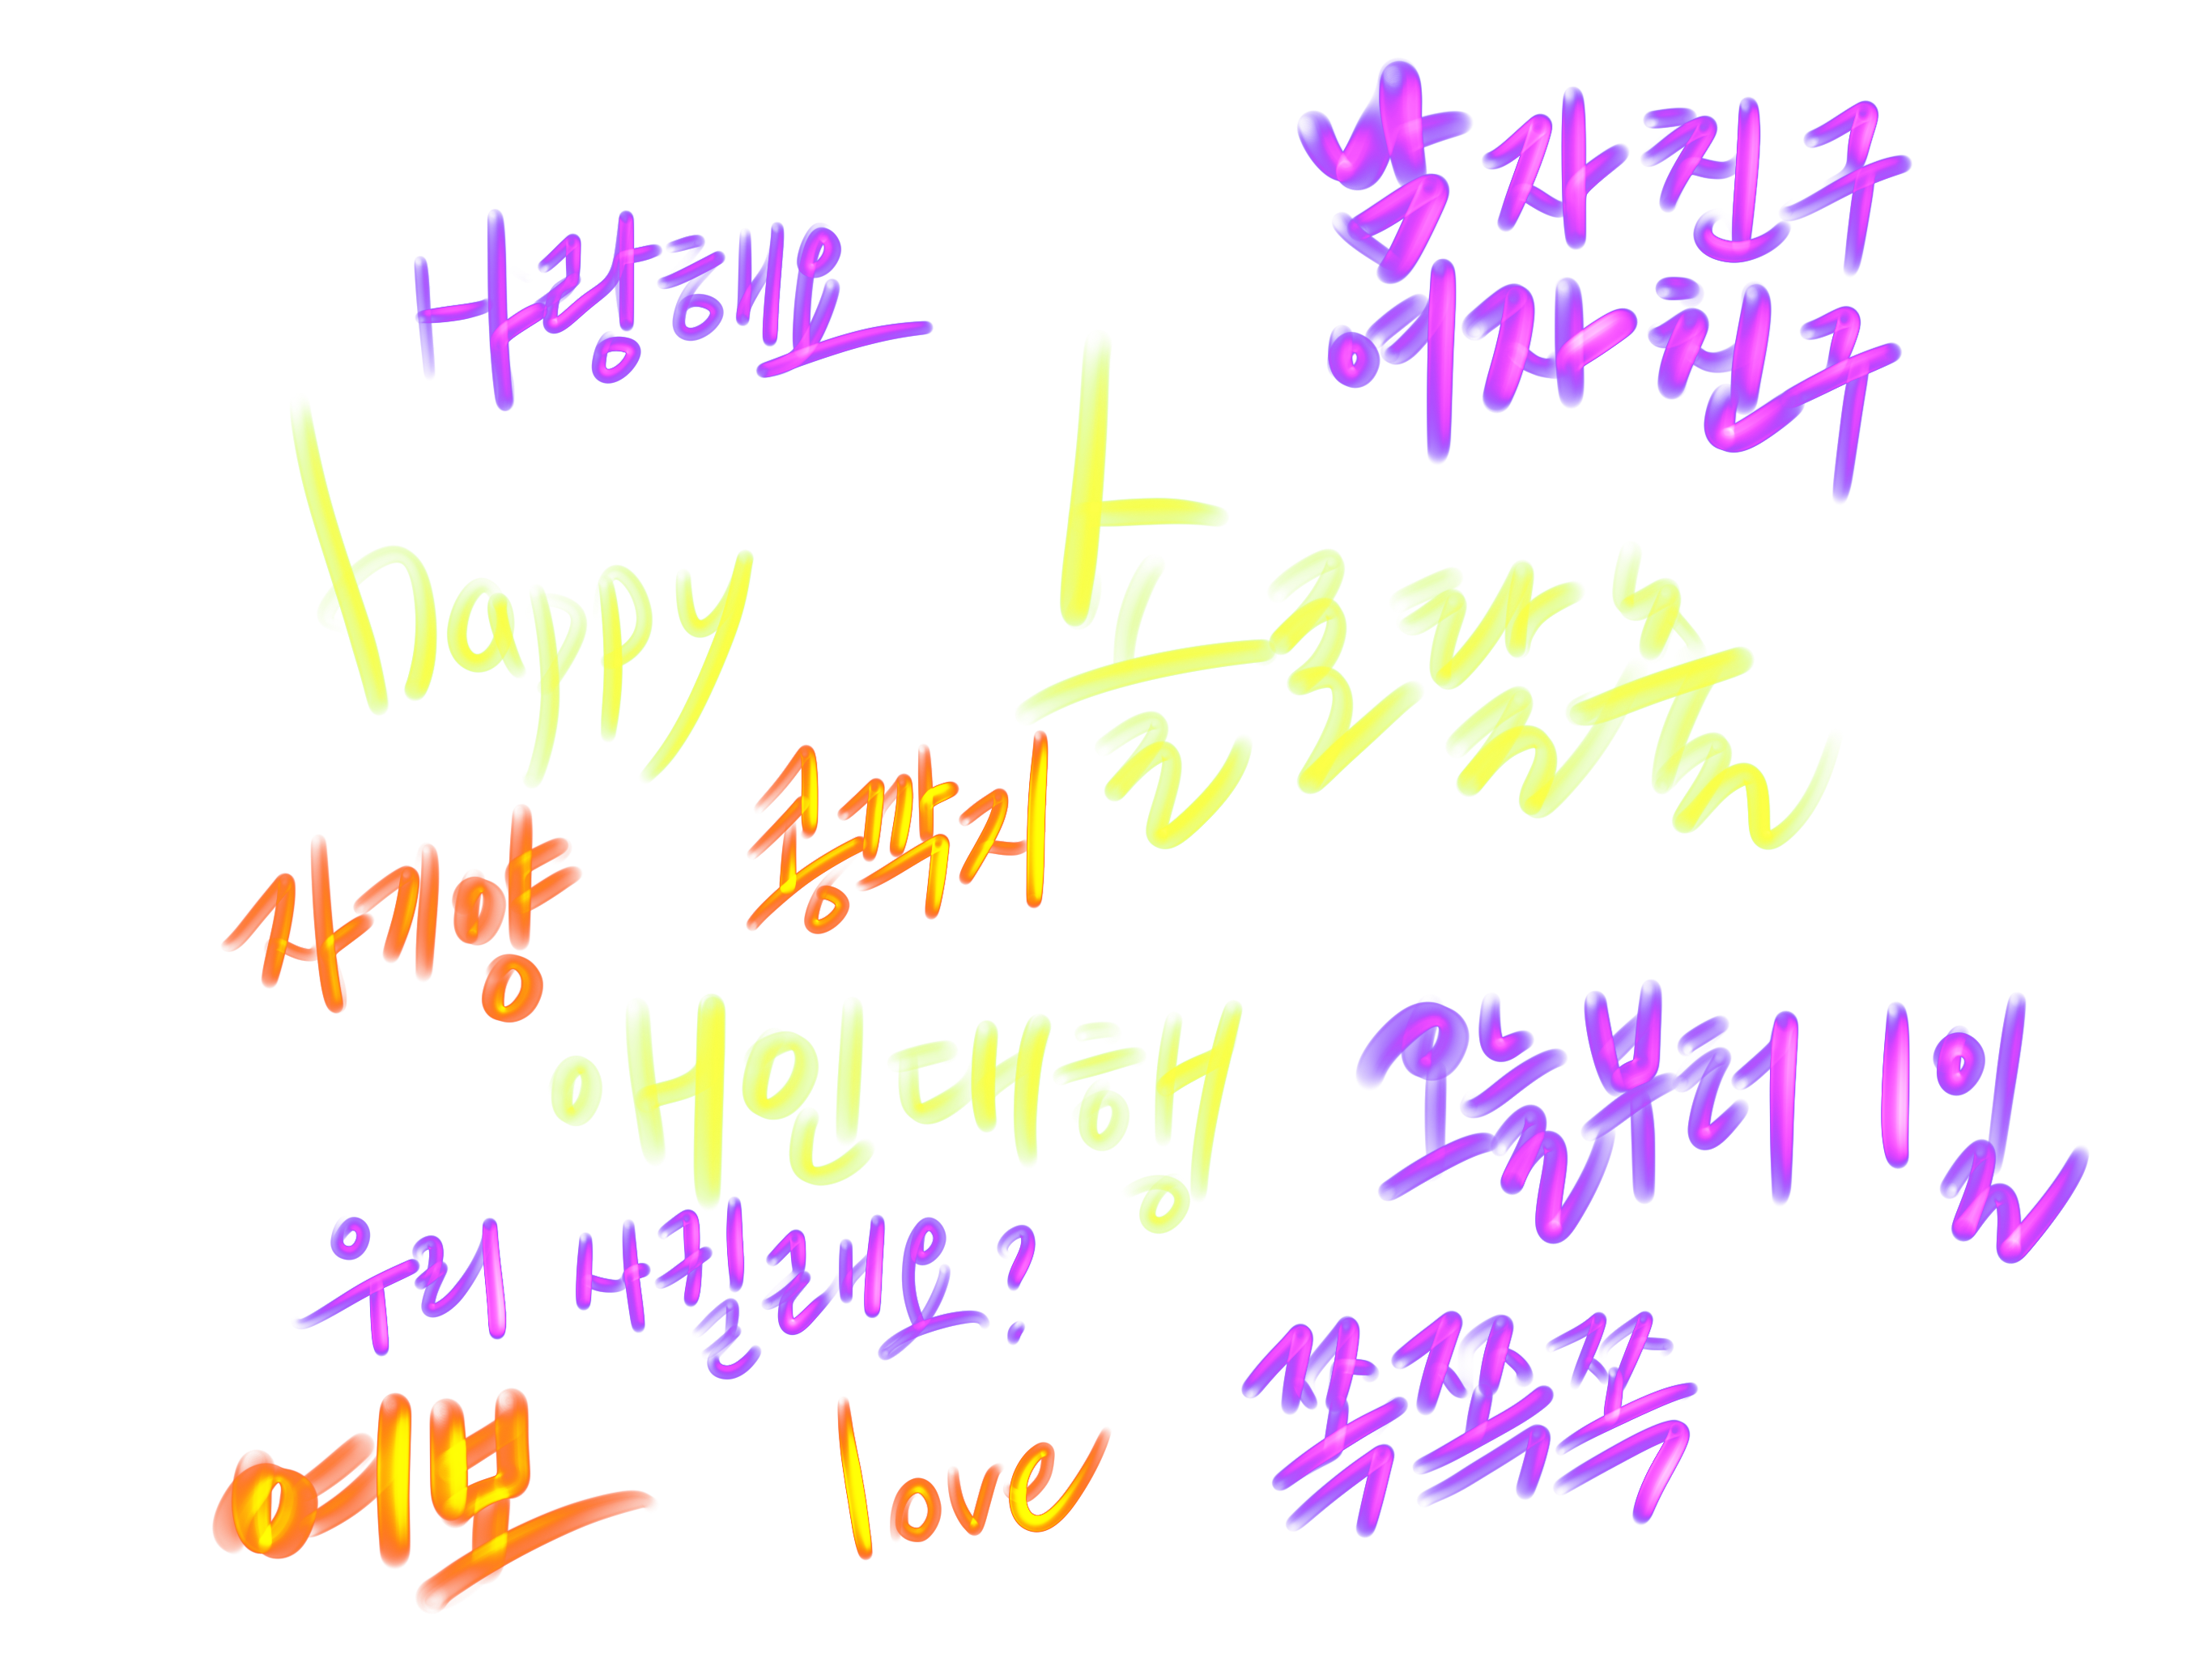 남자친구
사랑해요
여자친구
happy
콩깍지
자기양
애인대행
오늘부터 1일
우리 사귈래요?
쪽쪽쪽
여보
love